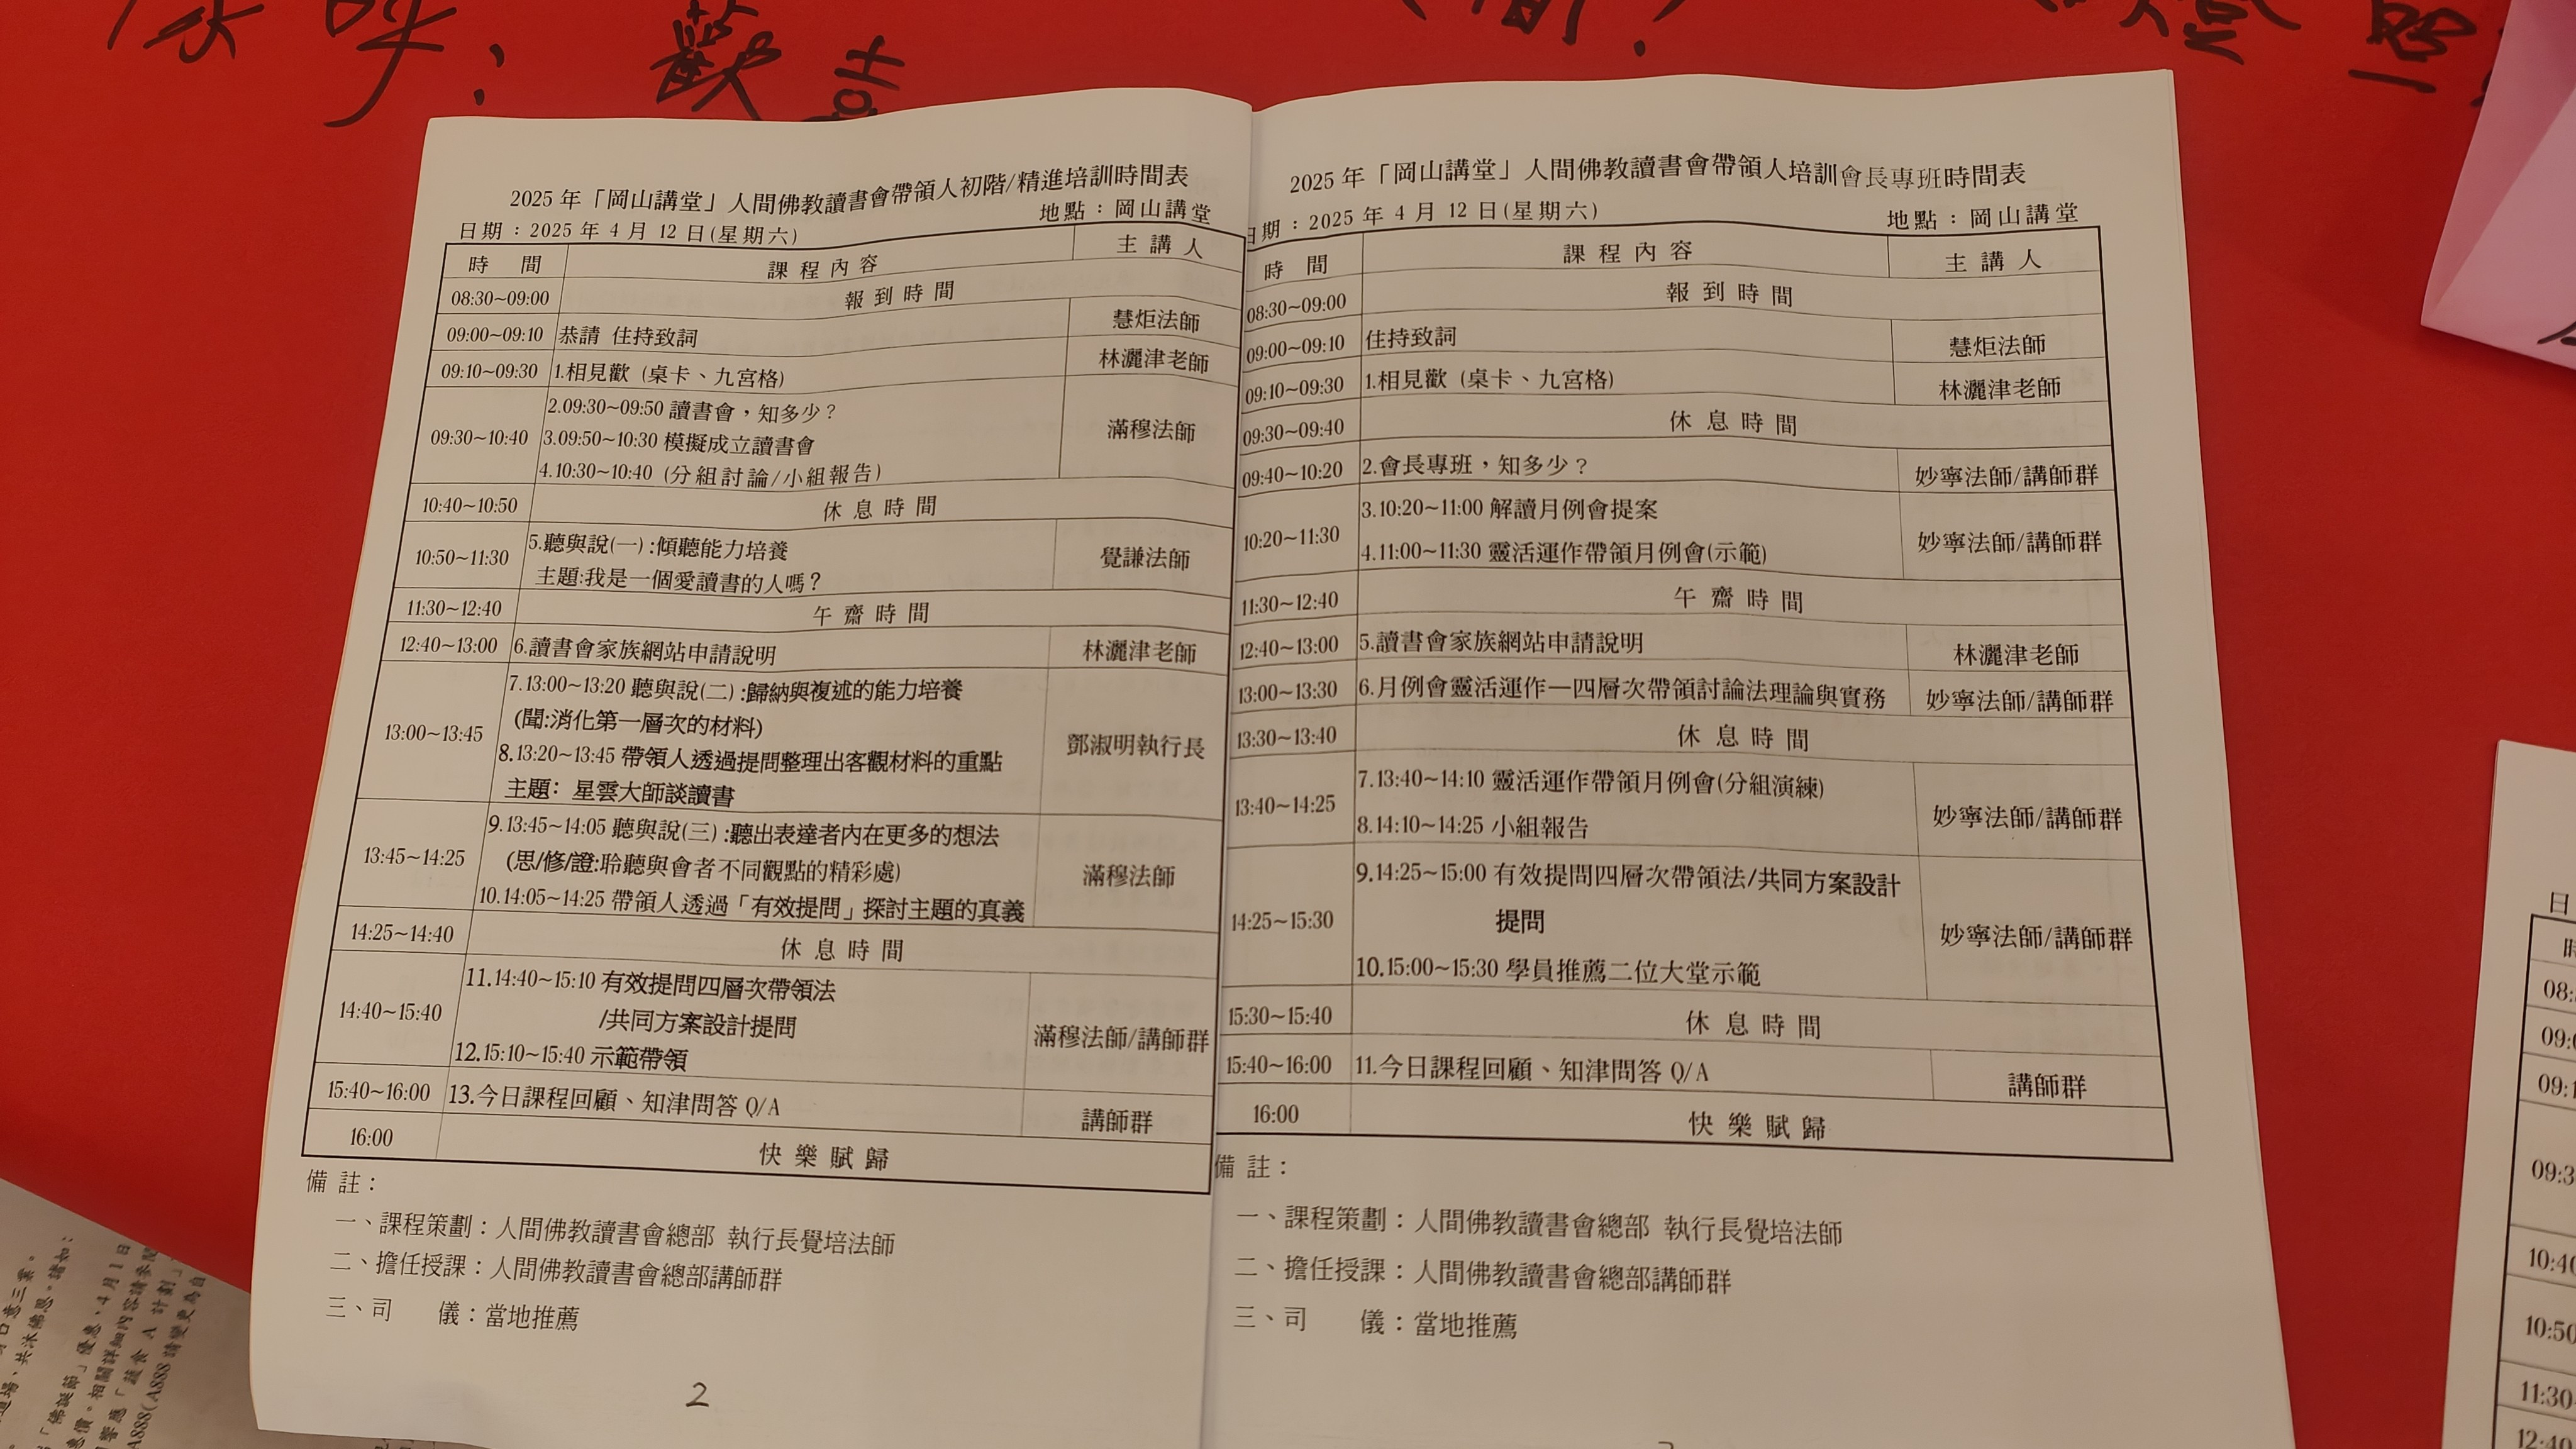 歡喜
2025 年「岡山講堂」人間佛教讀書會帶領人初階/精進培訓時間表
日期：2025 年 4 月 12 日(星期六)
地點：岡山講堂
時 間 課程內容 主講人
08:30~09:00 報到時間
09:00~09:10 恭請 住持致詞 慧炬法師
09:10~09:30 1.相見歡 (桌卡、九宮格) 林灑津老師
09:30~10:40 滿穆法師
2.09:30~09:50 讀書會，知多少？
3.09:50~10:30 模擬成立讀書會
4.10:30~10:40 (分組討論/小組報告)
10:40~10:50 休息時間
10:50~11:30 覺謙法師
5.聽與說(一):傾聽能力培養
主題:我是一個愛讀書的人嗎？
11:30~12:40 午齋時間
12:40~13:00 6.讀書會家族網站申請說明 林灑津老師
13:00~13:45 鄧淑明執行長
7.13:00~13:20 聽與說(二):歸納與複述的能力培養
(聞:消化第一層次的材料)
8.13:20~13:45 帶領人透過提問整理出客觀材料的重點
主題：星雲大師談讀書
13:45~14:25 滿穆法師
9.13:45~14:05 聽與說(三):聽出表達者內在更多的想法
(思/修/證:聆聽與會者不同觀點的精彩處)
10.14:05~14:25 帶領人透過「有效提問」探討主題的真義
14:25~14:40 休息時間
14:40~15:40 滿穆法師/講師群
11.14:40~15:10 有效提問四層次帶領法
/共同方案設計提問
12.15:10~15:40 示範帶領
15:40~16:00 13.今日課程回顧、知津問答 Q/A 講師群
16:00 快樂賦歸
備 註：
一、課程策劃：人間佛教讀書會總部 執行長覺培法師
二、擔任授課：人間佛教讀書會總部講師群
三、司 儀：當地推薦
2
2025 年「岡山講堂」人間佛教讀書會帶領人培訓會長專班時間表
日期：2025 年 4 月 12 日(星期六)
地點：岡山講堂
時 間 課程內容 主講人
08:30~09:00 報到時間
09:00~09:10 住持致詞 慧炬法師
09:10~09:30 1.相見歡 (桌卡、九宮格) 林灑津老師
09:30~09:40 休息時間
09:40~10:20 2.會長專班，知多少？ 妙寧法師/講師群
10:20~11:30 妙寧法師/講師群
3.10:20~11:00 解讀月例會提案
4.11:00~11:30 靈活運作帶領月例會(示範)
11:30~12:40 午齋時間
12:40~13:00 5.讀書會家族網站申請說明 林灑津老師
13:00~13:30 6.月例會靈活運作—四層次帶領討論法理論與實務 妙寧法師/講師群
13:30~13:40 休息時間
13:40~14:25 妙寧法師/講師群
7.13:40~14:10 靈活運作帶領月例會(分組演練)
8.14:10~14:25 小組報告
14:25~15:30 妙寧法師/講師群
9.14:25~15:00 有效提問四層次帶領法/共同方案設計
提問
10.15:00~15:30 學員推薦二位大堂示範
15:30~15:40 休息時間
15:40~16:00 11.今日課程回顧、知津問答 Q/A 講師群
16:00 快樂賦歸
備 註：
一、課程策劃：人間佛教讀書會總部 執行長覺培法師
二、擔任授課：人間佛教讀書會總部講師群
三、司 儀：當地推薦